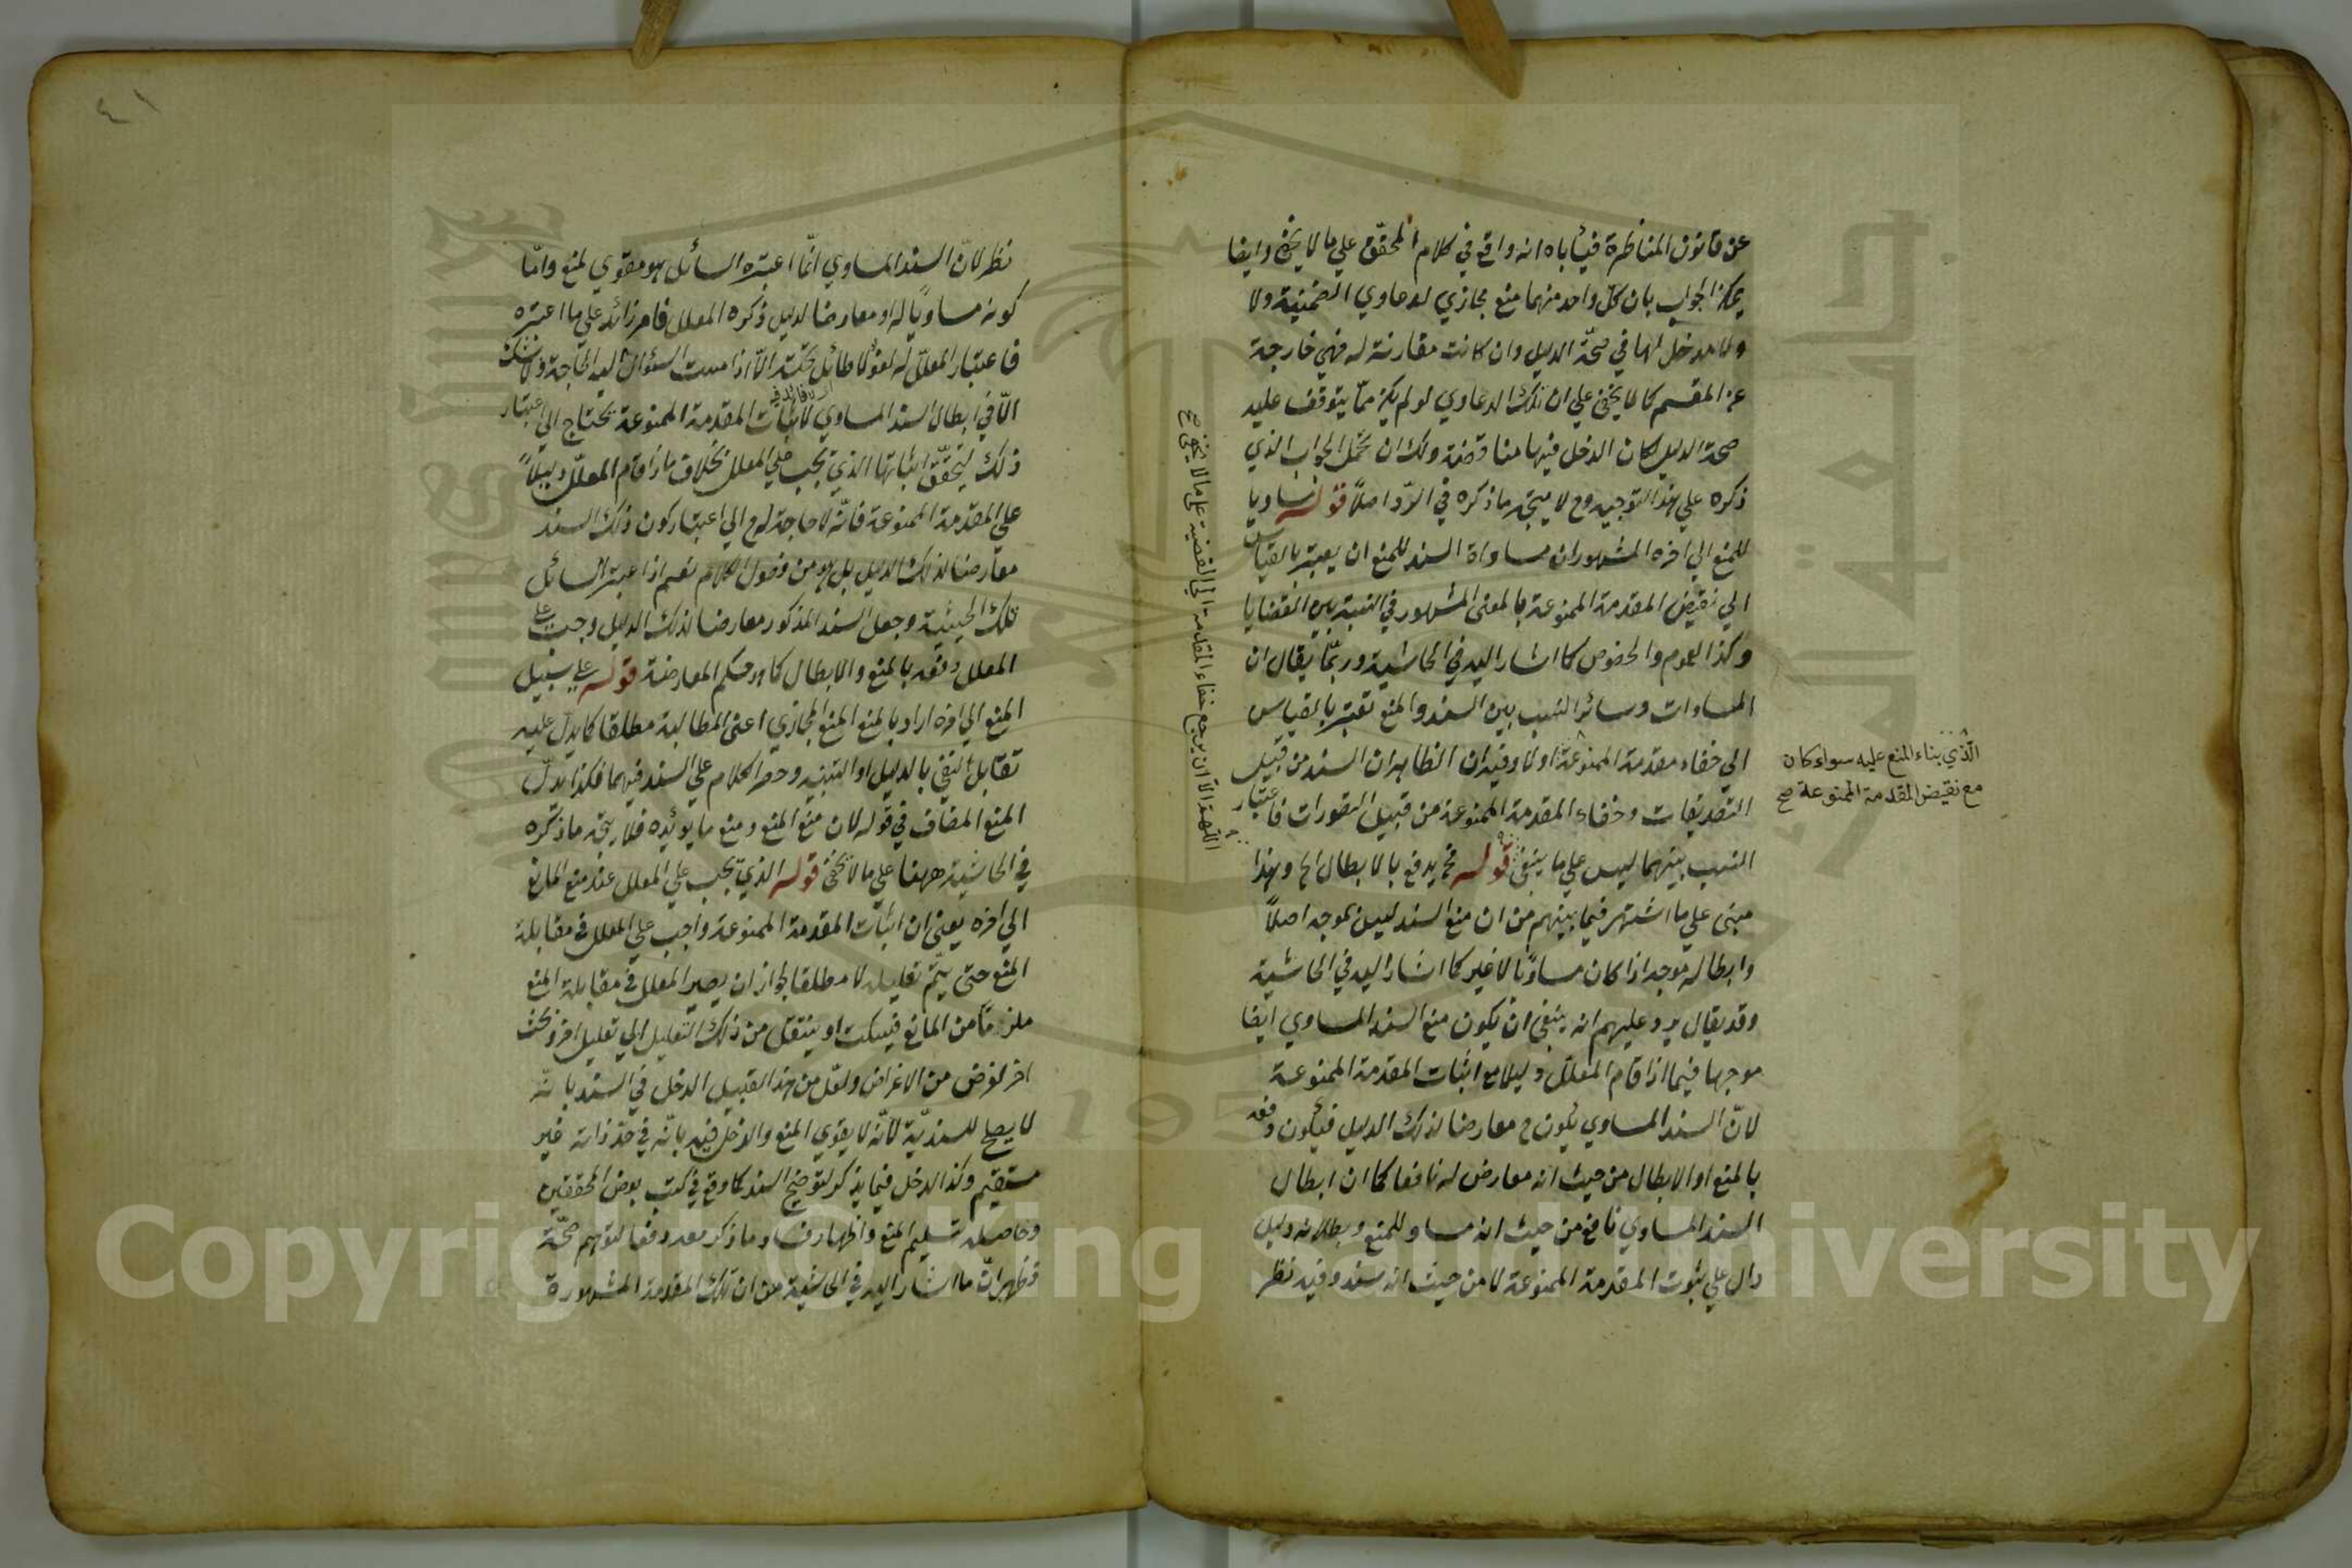 عن قانون المناظرة فيأباه انه واقع في كلام المحقق علي ما لا يخفي وايضا
يمكن الجواب بان كل واحد منهما منع مجازي لدعاوي الضمنية ولا
ولا مدخل لها في صحّة الدليل وان كانت مقارنة له فهي خارجة
عن المقسم كما لا يخفي علي ان تلك الدعاوي لو لم يكن ممّا يتوقف عليه
صحة الدليل لكان الدخل فيها مناقضة ولك ان تحمل الجواب الذي
ذكره علي هذا التوجيه وح لا يتجه ما ذكره في الرّد اصلاً قوله مساويا
للمنع الي اخره المشهور ان مساواة السند للمنع ان يعتبر بالقياس
الي نقيض المقدمة الممنوعة بالمعنى المشهور في النسبة بين القضايا
وكذا العموم والخصوص كما اشار اليه في الحاشية وربمّا يقال ان
المساوات وسائر النسب بين السند والمنع تعتبر بالقياس
الي خفاء مقدمة الممنوعة اولا وفيه ان الظاهر ان السند من قبيل
التصديقات وخفاء المقدمة الممنوعة من قبيل التصورات فاعتبار
النسب بينهما ليس علي ما ينبغي قوله فح يدفع بالابطال الخ وهذا
مبنى علي ما اشتهر فيما بينهم من ان منع السند ليس بموجه اصلاً
وابطاله موجه اذا كان مساويًا لا غير كما اشار اليه في الحاشية
وقد يقال يرد عليهم انه ينبغي ان يكون منع السند المساوي ايضا
موجها فيما اذا قام المعلل دليلا مع اثبات المقدمة الممنوعة
لانّ السند المساوي يكون ح معارضا لذلك الدليل فيكون دفعه
بالمنع او الابطال من حيث انه معارض له نافعا كما ان ابطال
السند المساوي نافع من حيث انه مساو للمنع وبطلانه دليل
دال علي ثبوت المقدمة الممنوعة لا من حيث انه سند وفيه نظر
الّذي بناء المنع عليه سواء كان
مع نقيض المقدمة الممنوعة صح
اللّهمّ الّا ان يرجع خفاء المقدمة الي القضية على ما لا يخفى صح
٤١
نظر لانّ السند المساوي انّما اعتبره السائل هو مقوي لمنع وامّا
كونه مساويًا له او معارضا لدليل ذكره المعلل فامر زائد علي ما اعتبره
فاعتبار المعلّل له لغو لا طائل تحته الّا اذا مست السؤال اليه الحاجة ولا شك
الّا في ابطال السند المساوي لاثبات المقدمة الممنوعة يحتاج الي اعتبار
ذلك ليتحقّق اثباتها الذي يجب علي المعلل بخلاف ما اذا قام المعلّل دليلاً
علي المقدمة الممنوعة فانّه لا حاجة له ح الي اعتبار كون ذلك السند
معارضا لذلك الدليل بل هو من فضول الكلام نعم اذا اعتبر السائل
تلك الحيثية وجعل السند المذكور معارضا لذلك الدليل وجب على
المعلل دفعه بالمنع والابطال كما هو حكم المعارضة قوله علي سبيل
المنع الي اخره اراد بالمنع المنع المجازي اعني المطالبة مطلقا كما يدلّ عليه
تقابل النفي بالدليل او التنبيه وحصر الكلام علي السند فيهما فكذا يدلّ
المنع المضاف في قوله لان منع المنع ومنع ما يؤيده فلا يتجه ما ذكره
في الحاشية ههنا علي ما لا يخفي قوله الذي يجب علي المعلل عند منع المانع
الي اخره يعني ان اثبات المقدمة الممنوعة واجب علي المعلل في مقابلة
المنع حتى يتّم تعليله لا مطلقا لجواز ان يصير المعلل في مقابلة المنع
ملزمًا من المانع فيسكت او ينتقل من ذلك التعليل الي تعليل اخر وبحث
اخر لغرض من الاغراض ولعّل من هذا القبيل الدخل في السند بانّه
لا يصلح للسنديّة لانّه لا يقوي المنع والدخل فيه بانّه في حدّ ذاته غير
مستقيم وكذا الدخل فيما يذكر لتوضيح السند كما وقع في كتب بعض المحققين
وحاصله تسليم المنع واظهار فساد ما ذكر معه دفعا لتوهم صحّته
فظهر انّ ما اشار اليه في الحاشية من ان تلك المقدمة المشهورة
Copyright © King Saud University